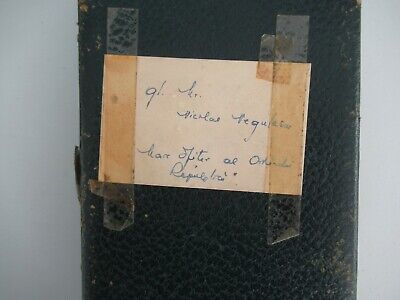 gl. Mr.
Nicolae Negulescu
Mare Ofiter al Ordinului
"Republicii"